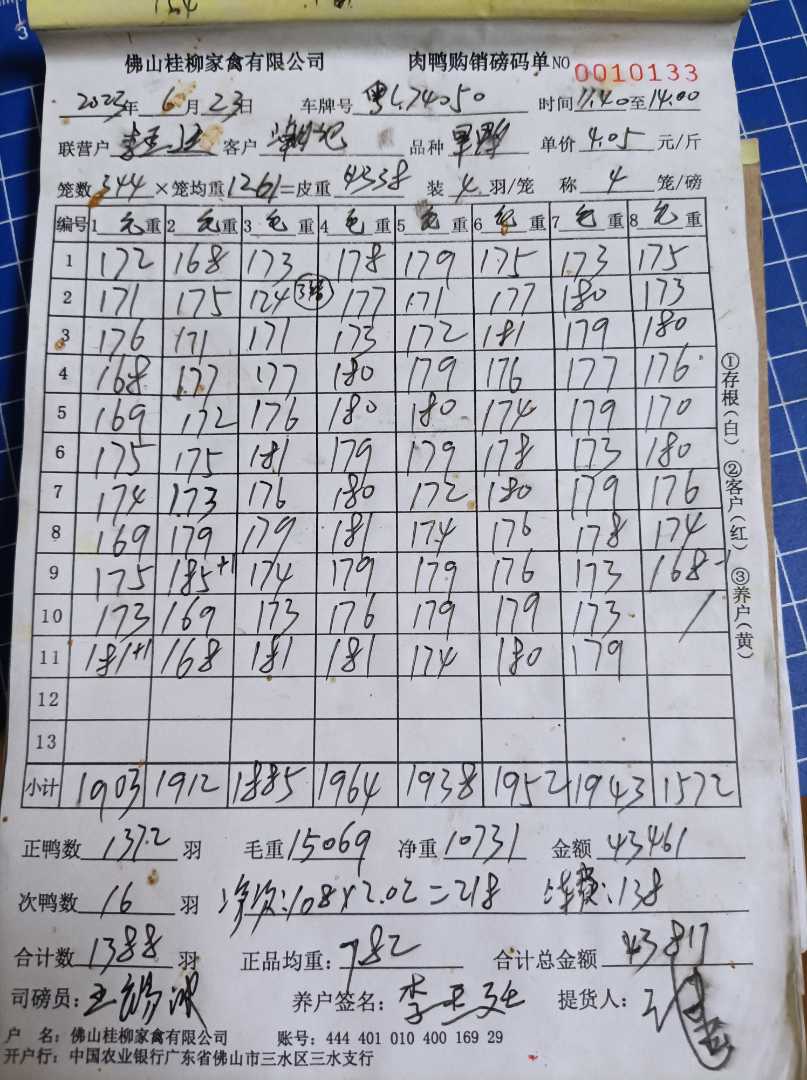 佛山桂柳家禽有限公司 肉鸭购销磅码单 NO 0010133
2023年 6 月 23 日 车牌号 粤L74050 时间 11.40 至 14.00
联营户 李 客户 记 品种 单价 4.05 元/斤
笼数 344 ×笼均重 1261 =皮重 4338 装 4 羽/笼 称 4 笼/磅
编号 1 毛 重 2 毛 重 3 毛 重 4 毛 重 5 毛 重 6 毛 重 7 毛 重 8 毛 重
1 172 168 173 178 179 175 173 175
2 171 175 124 177 171 177 180 173
3 176 171 171 173 172 181 179 180
4 168 177 177 180 179 176 177 176
5 169 172 176 180 180 174 179 170
6 175 175 181 179 179 178 173 180
7 174 173 176 180 172 180 179 176
8 169 179 179 181 174 176 178 174
9 175 185+1 174 179 179 176 173 168-1
10 173 169 173 176 179 179 173 /
11 181+1 168 181 181 174 180 179
12
13
小计 1903 1912 1885 1964 1938 1952 1943 1572
正鸭数 1372 羽 毛重 15069 净重 10731 金额 43461
次鸭数 16 羽 :108×2.02=218 费:138
合计数 1388 羽 正品均重: 782 合计总金额 43817
司磅员: 王锡 养户签名: 李 提货人:
户 名: 佛山桂柳家禽有限公司 账号: 444 401 010 400 169 29
开户行: 中国农业银行广东省佛山市三水区三水支行
①存根(白) ②客户(红) ③养户(黄)